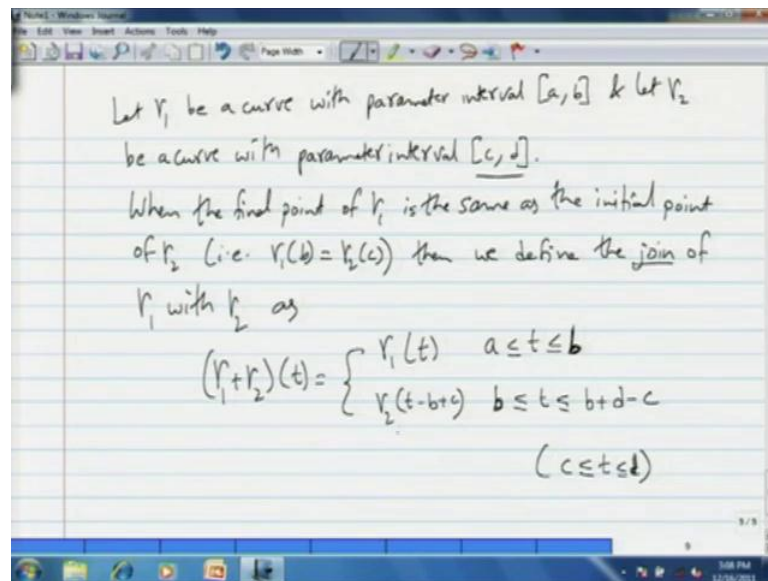 Note1 - Windows Journal
File Edit View Insert Actions Tools Help
Page Width
Let γ₁ be a curve with parameter interval [a, b] & let γ₂
be a curve with parameter interval [c, d].
When the final point of γ₁ is the same as the initial point
of γ₂ (i.e. γ₁(b) = γ₂(c)) then we define the join of
γ₁ with γ₂ as
(γ₁+γ₂)(t) = { γ₁(t) a ≤ t ≤ b
γ₂(t-b+c) b ≤ t ≤ b+d-c
(c ≤ t ≤ d)
9/9
9
5:08 PM
12/16/2011